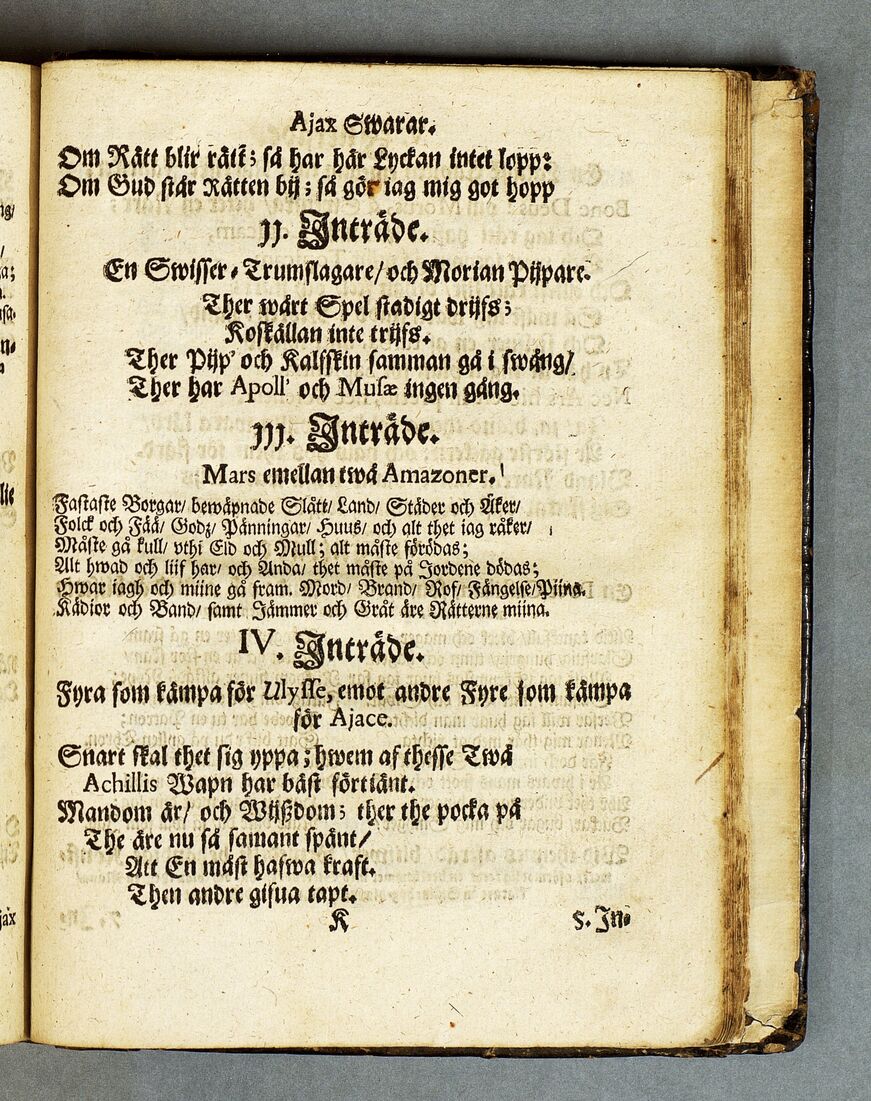 Ajax Swarar.
Om Rätt blir rätt; så har här Lyckan intet lopp:
Om Gud står Rätten bij; så gör iag mig got hopp
II. Inträde.
En Swisser-Trumslagare/ och Morian Pijpare.
Ther wårt Spel stadigt drijfs;
Koskällan inte trijfs.
Ther Pijp' och Kalfskin samman gå i swång/
Ther har Apoll' och Musæ ingen gång.
III. Inträde.
Mars emellan twå Amazoner.
Fastaste Borgar/ bewäpnade Slätt/ Land/ Städer och Åker/
Folck och Fää/ Godz/ Pänningar/ Huus/ och alt thet iag råker/
Måste gå kull/ vthi Eld och Mull; alt måste förödas;
Alt hwad och liif har/ och Anda/ thet måste på Jordene dödas;
Hwar iagh och miine gå fram. Mord/ Brand/ Rof/ Fängelse/ Piina.
Kädior och Band/ samt Jämmer och Gråt äre Rätterne miina.
IV. Inträde.
Fyra som kämpa för Ulysse, emot andre Fyre som kämpa
för Ajace.
Snart skal thet sig yppa; hwem af thesse Twå
Achillis Wapn har bäst förtiänt.
Mandom är/ och Wijßdom; ther the pocka på
The äre nu så samant spänt/
Att En måst hafwa kraft.
Then andre gifua tapt.
K
5. In-